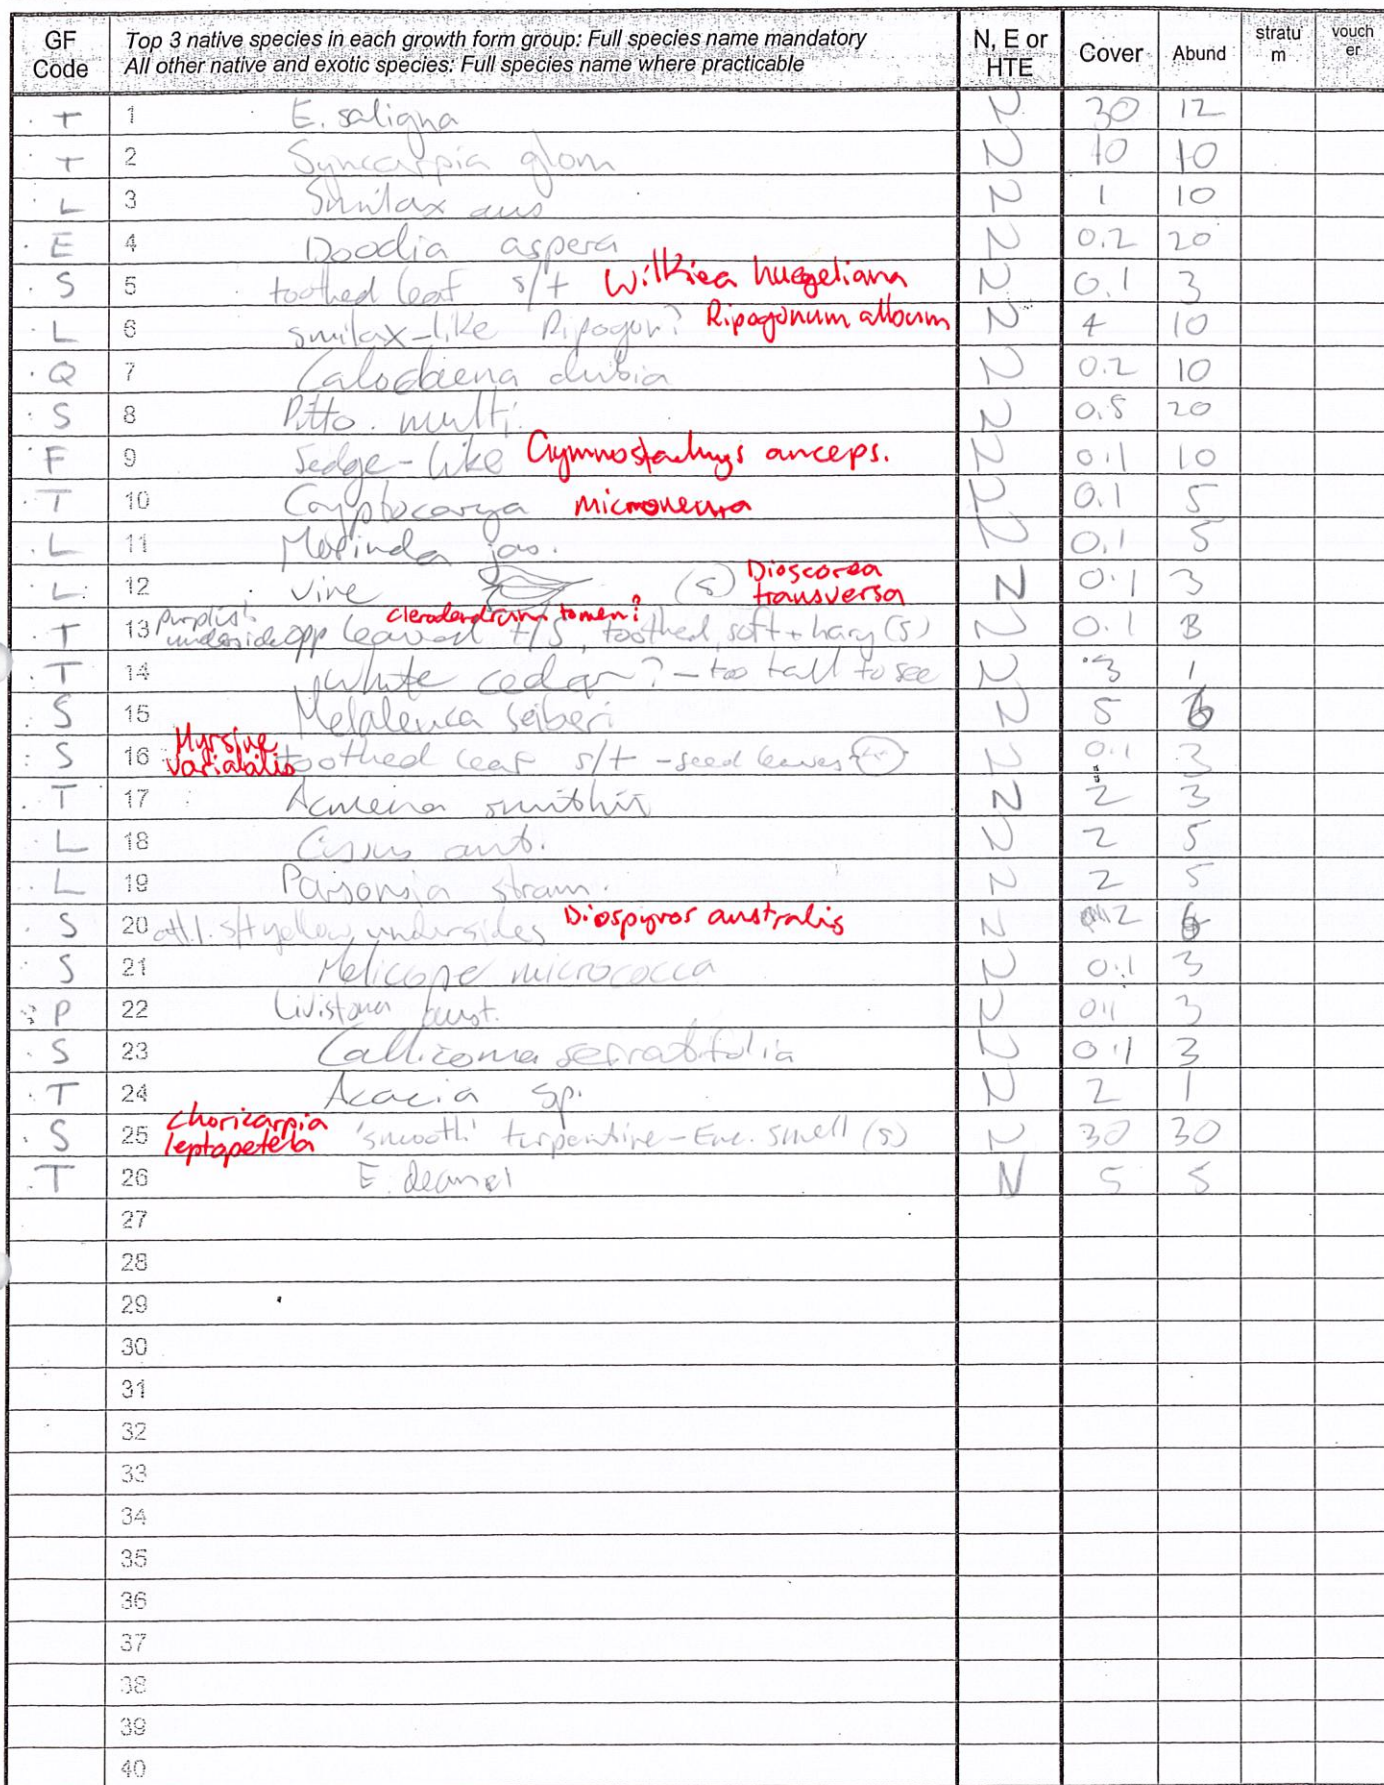 GF Code Top 3 native species in each growth form group: Full species name mandatory All other native and exotic species: Full species name where practicable N, E or HTE Cover Abund stratum voucher
T 1 E. saligna N 30 12
T 2 Syncarpia glom N 10 10
L 3 Smilax aus N 1 10
E 4 Doodia aspera N 0.2 20
S 5 toothed leaf s/t Wilkiea huegeliana N 0.1 3
L 6 smilax-like Ripogon? Ripogonum album N 4 10
Q 7 Calochlaena dubia N 0.2 10
S 8 Pitto. multi. N 0.5 20
F 9 Sedge-like Gymnostachys anceps. N 0.1 10
T 10 Cryptocarya microneura N 0.1 5
L 11 Morinda jas. N 0.1 5
L 12 vine (s) Dioscorea transversa N 0.1 3
T 13 purplish underside opp leaved t/s, toothed, soft + hairy (s) clerodendrum tomen? N 0.1 3
T 14 White cedar? - too tall to see N 3 1
S 15 Melaleuca seiberi N 5 6
S 16 Myrsine variabilis toothed leaf s/t - seed leaves N 0.1 3
T 17 Acmena smithii N 2 3
L 18 Cissus ant. N 2 5
L 19 Parsonsia stram. N 2 5
S 20 s/t yellow undersides Diospyros australis N 6
S 21 Melicope micrococca N 0.1 3
P 22 Livistona aust. N 0.1 3
S 23 Callicoma serratifolia N 0.1 3
T 24 Acacia sp. N 2 1
S 25 choricarpia leptopetela 'smooth' turpentine - Euc. smell (s) N 30 30
T 26 E. deanei N 5 5
27
28
29
30
31
32
33
34
35
36
37
38
39
40